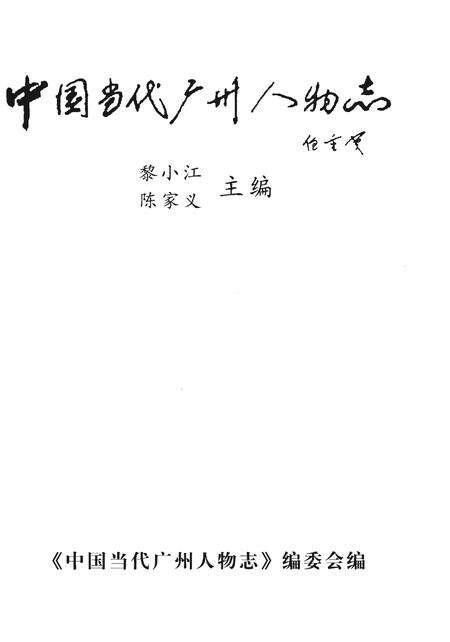 中国当代广州人物志
任重贤
黎小江
陈家义
主编
《中国当代广州人物志》编委会编